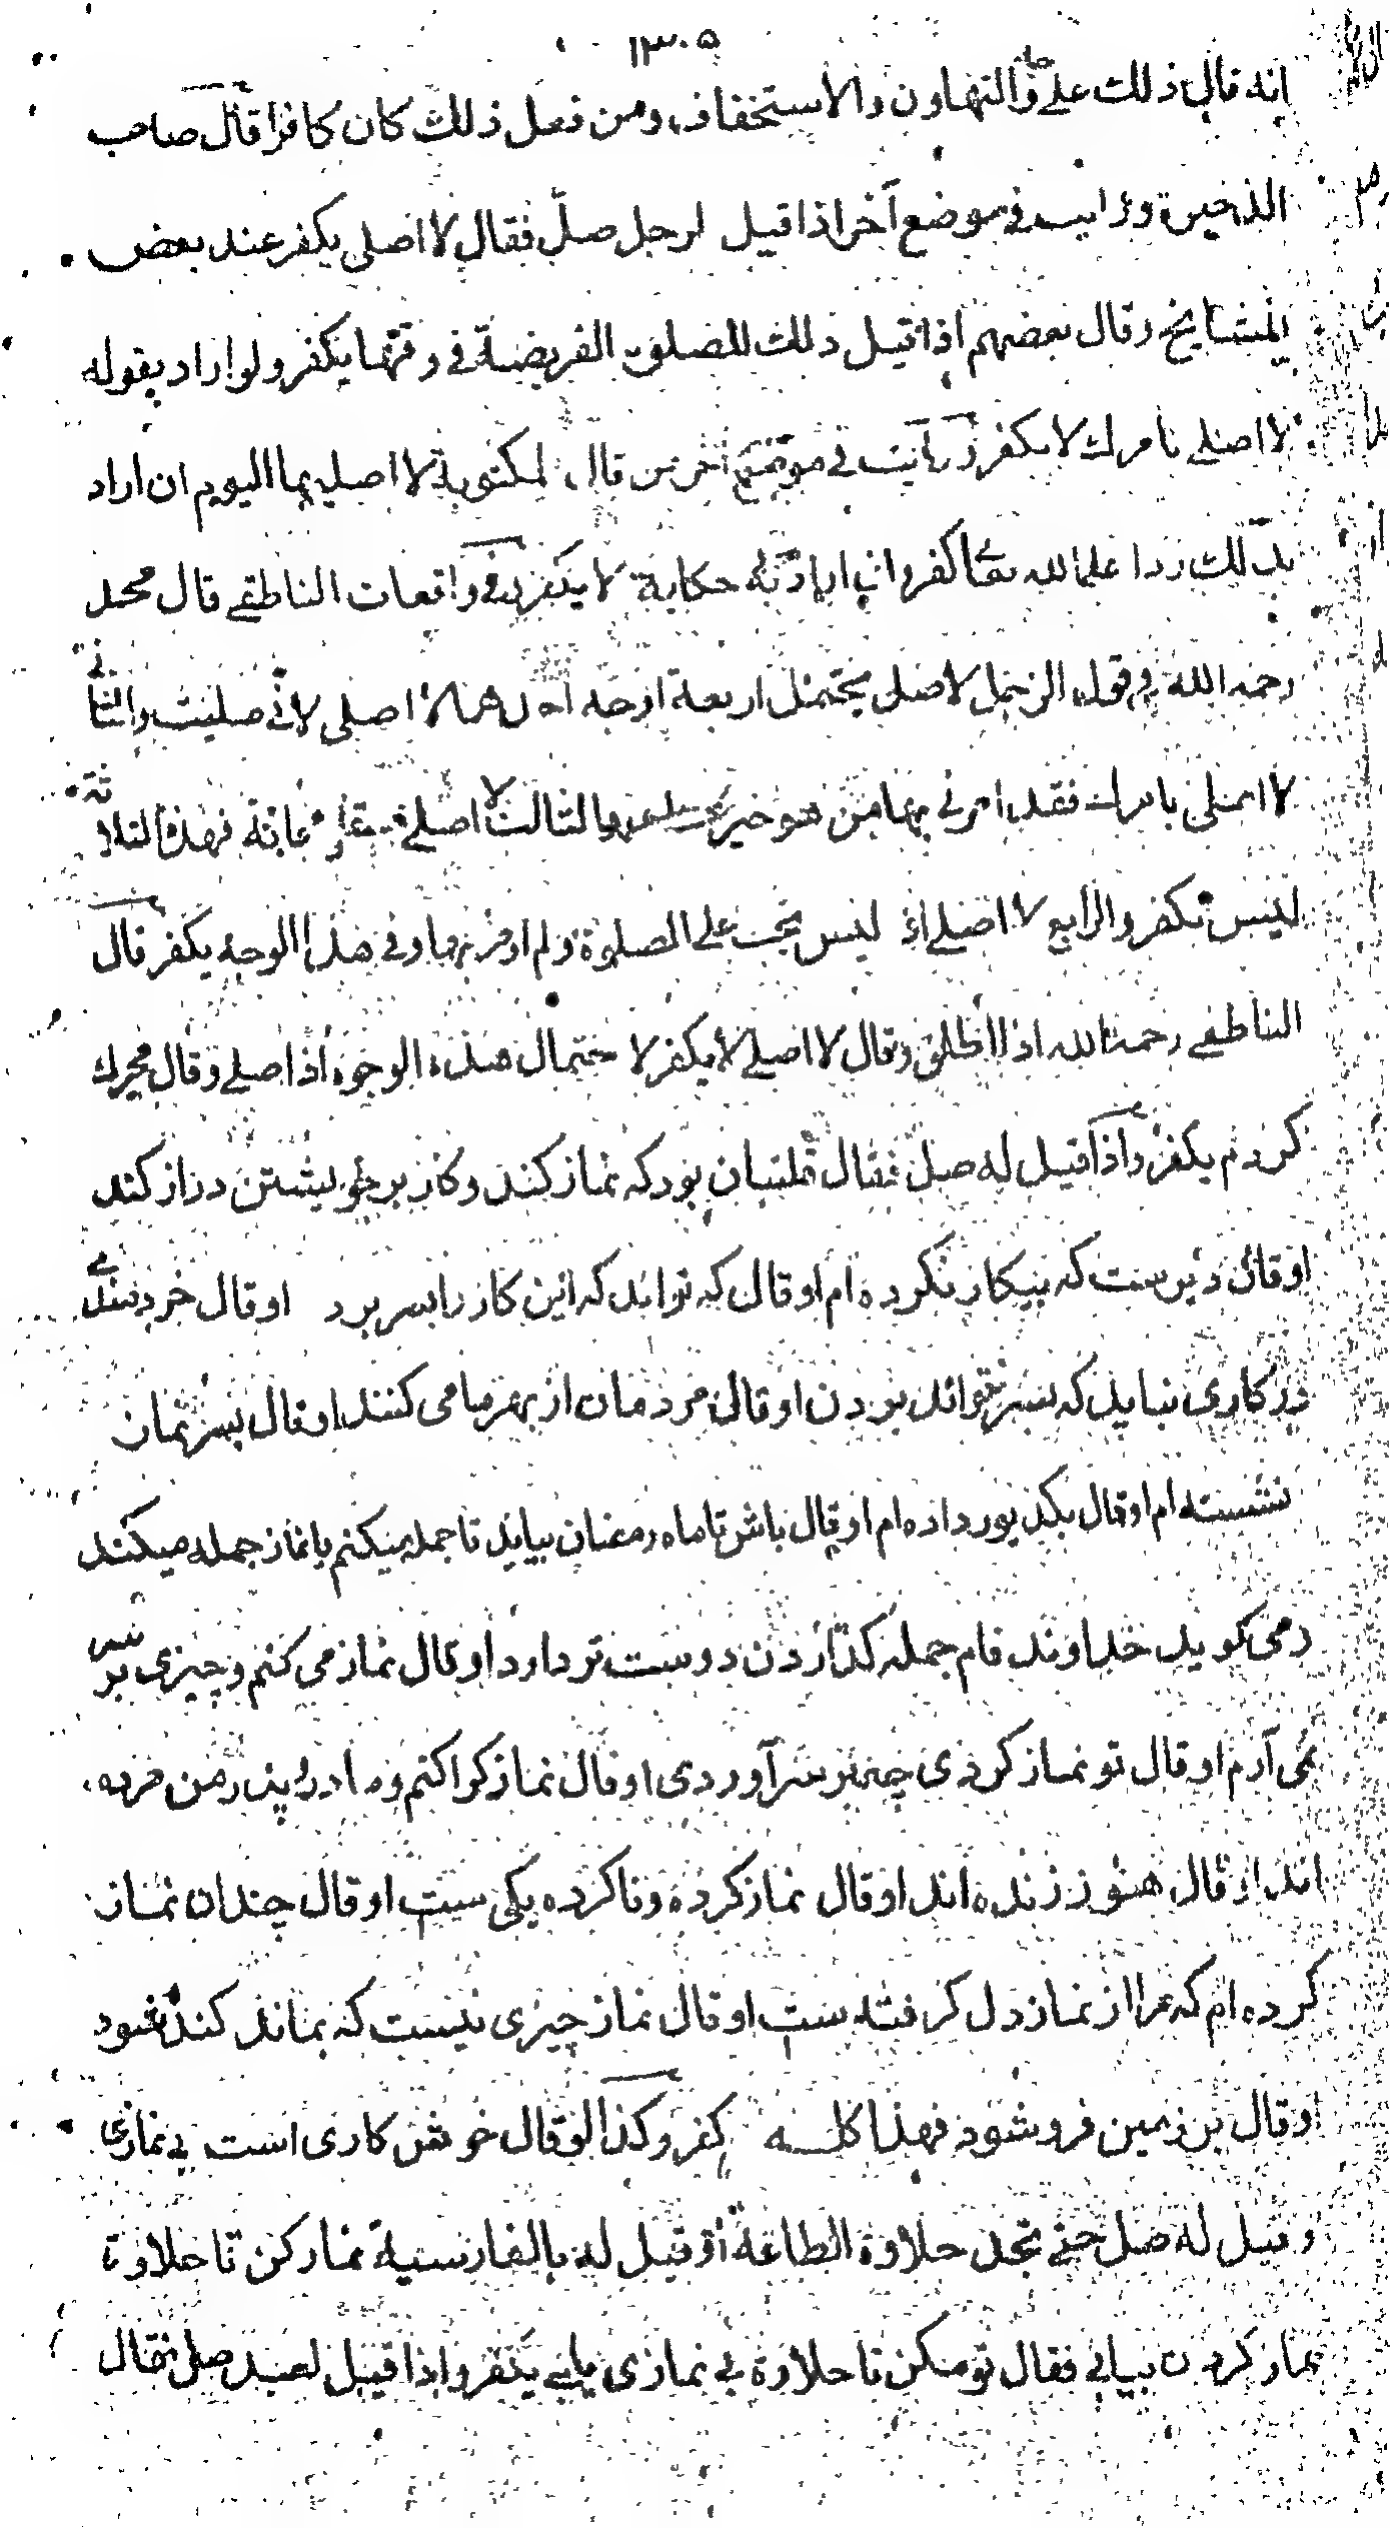 ١٣٠٥
انه قال ذلك على وجه التهاون والاستخفاف ومن فعل ذلك كان كافرا قال صاحب
الذخيرة ورايت في موضع آخر اذا قيل لرجل صلّ فقال لا اصلى يكفر عند بعض
المشايخ وقال بعضهم اذا قيل ذلك للصلوة الفريضة في وقتها يكفر ولو اراد بقوله
لا اصلے بامرك لا يكفر ورايت في موضع آخر من قال لمكتوبة لا اصليها اليوم ان اراد
بذلك ردا على الله تعا كفر وان اراد به حكاية لا يكفر وفي واقعات الناطفے قال محمد
رحمه الله في قول الرجل لا اصلى يحتمل اربعة اوجه احدها لا اصلى لانّي صليت والثاني
لا اصلى بامرك فقد امرني بها من هو خير منك والثالث لا اصلے فهذه الثلاثة
ليس بكفر والرابع لا اصلے اذ ليس تجب على الصلوة ولم اومر بها وفي هذا الوجه يكفر قال
الناطفے رحمه الله اذا اطلق وقال لا اصلے لا يكفر لاحتمال هذه الوجوه اذا صلے وقال
كردم يكفر واذا قيل له صل فقال قلتبان بود كه نماز كند وكار بر خويشتن دراز كند
او قال ديرست كه بيكار نكرده ام او قال كه تواند كه اين كار را بسر برد او قال خردمندے
در كارى نيايد كه بسر نتواند بردن او قال مردمان از بهر ما مى كنند او قال بسر نماز
نشسته ام او قال باش تا ماه رمضان بيايد تا جمله ميكنم يا نماز جمله ميكند
ومى كويد خداوند فام جمله كذاردن دوست تر دارد او قال نماز مى كنم وچيزى بر سر
نمى آرم او قال تو نماز كردى چه بر سر آوردى او قال نماز كرا كنم ومادر وپدر من مرده
اند او قال هنوز زنده اند او قال نماز كرده ونا كرده يكى ست او قال چندان نماز
كرده ام كه مرا از نماز دل كرفته ست او قال نماز چيزى نيست كه بماند كنده شود
او قال بن زمين فرو شود فهذا كله كفر وكذا لو قال خوش كارى است بى نمازى
او قيل له صل حتى تجد حلاوة الطاعة او قيل له بالفارسية نماز كن تا حلاوة
نماز كردن بيابى فقال تو مكن تا حلاوة بى نمازى يابى يكفر واذا قيل لعبد صل فقال